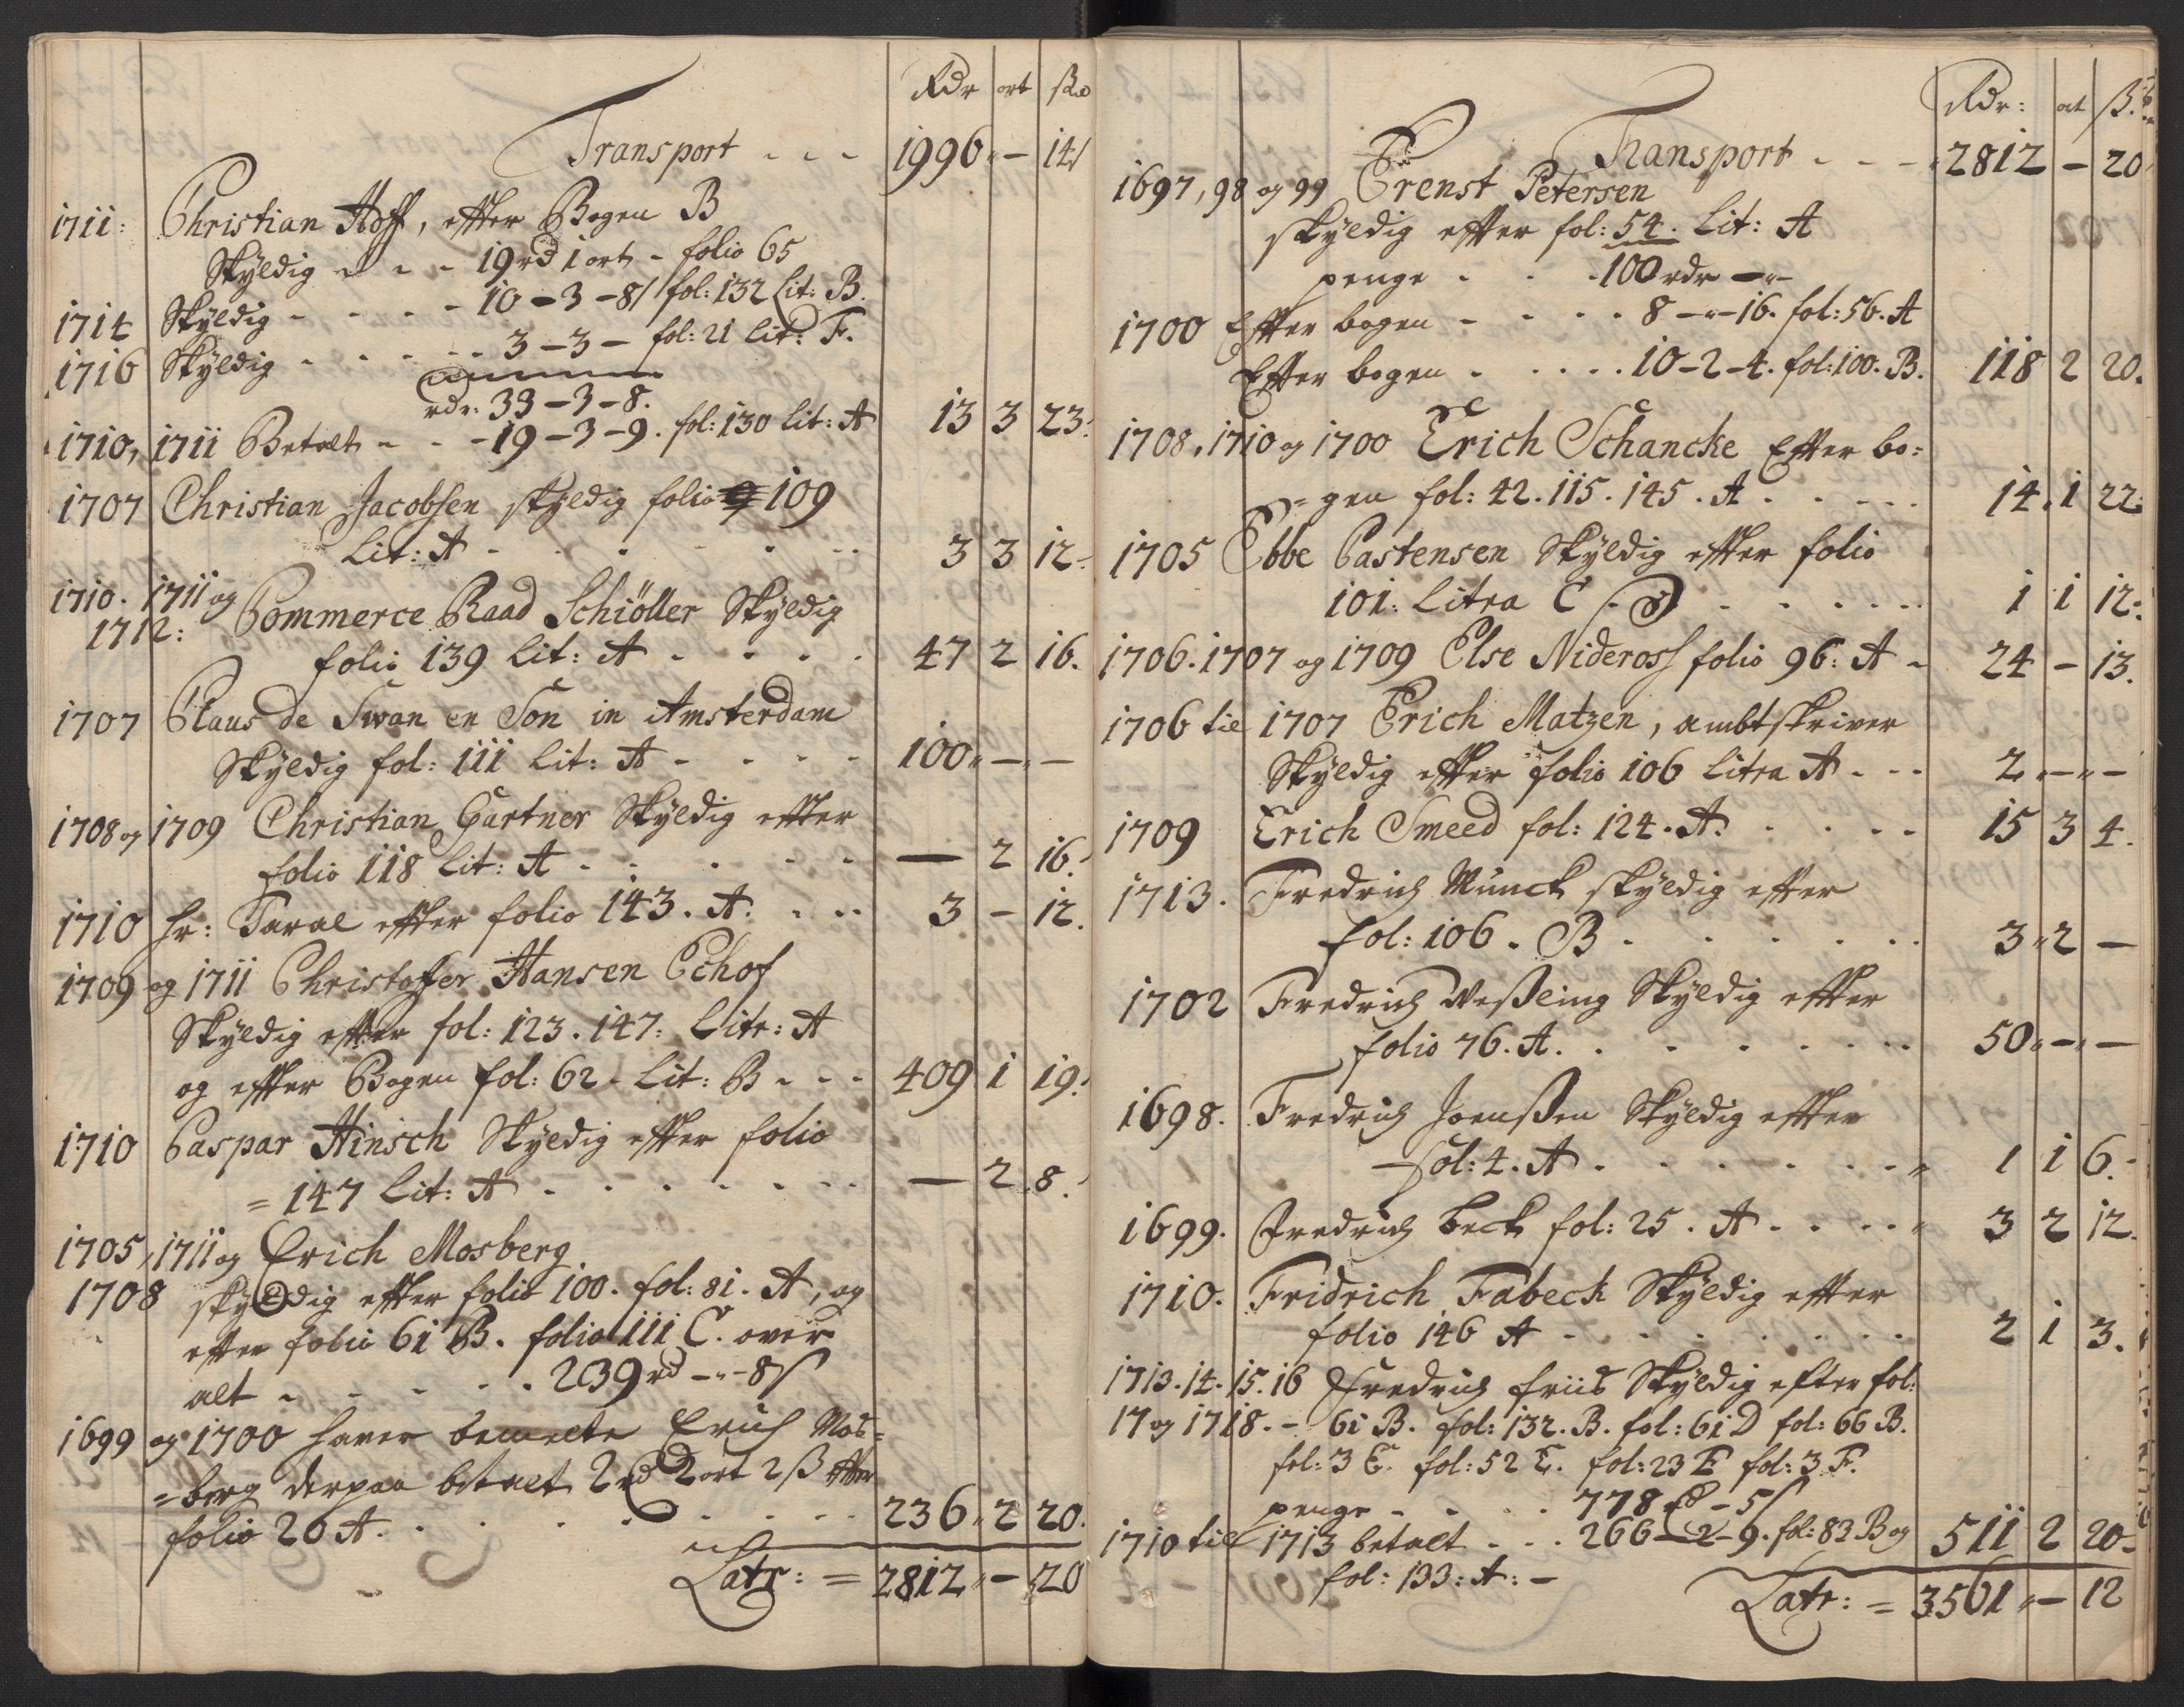 Rdr ort ß
Transport - - - 1996 - 14
1711: Christian Hoff, efter Bogen B
Skyldig - - - 19 rd 1 ort - folio 65
1714 Skyldig - - - - 10 - 3 - 8 fol: 132 Lit: B.
1716 Skyldig - - - - - 3 - 3 - fol: 21 Lit: F.
rdr: 33 - 3 - 8.
1710, 1711 Betalt - - - 19 - 3 - 9. fol: 130 Lit: A 13 3 23.
1707 Christian Jacobsen skyldig folio 109
Lit: A - - - - - 3 3 12.
1710. 1711 og
1712: Commerce Raad Schiöller Skyldig
folio 139 Lit: A - - - - 47 2 16.
1707 Claus de Swan en Son in Amsterdam
Skyldig fol: 111 Lit: A - - - - 100 - -
1708 og 1709 Christian Gartner Skyldig efter
folio 118 Lit: A - - - - - - 2 16.
1710 hr: Taral efter folio 143. A. - - - 3 - 12.
1709 og 1711 Christoffer Hansen Echof
Skyldig efter fol: 123. 147: Litr: A
og efter Bogen fol: 62. Lit: B - - - 409 1 19.
1710 Caspar Hinsch Skyldig efter folio
= 147 Lit: A - - - - - - - 2 8.
1705, 1711 og Erich Mosberg
1708 skyldig efter folio 100. fol: 81. A, og
efter folio 61 B. folio 111 C. over
alt - - - - - 239 rd - - 8
1699 og 1700 haver bemelte Erich Mos=
=berg derpaa betalt 2 rd 2 ort 2 ß efter
folio 26 A. - - - - - - 236 2 20.
Latr: = 2812 - 20
Rdr: ort ß.
Transport - - - 2812 - 20
1697, 98 og 99 Erenst Petersen
skyldig efter fol: 54. Lit: A
penge - - - 100 rdr - -
1700 Efter bogen - - - - 8 - - 16. fol: 56. A
Efter bogen - - - - 10 - 2 - 4. fol: 100. B. 118 2 20.
1708, 1710 og 1700 Erich Schancke Efter bo=
=gen fol: 42. 115. 145. A - - - - 14. 1 22.
1705 Ebbe Castensen Skyldig efter folio
101: Litra C - - - - - 1 1 12.
1706. 1707 og 1709 Else Nideross folio 96: A - 24 - 13.
1706 til 1707 Erich Matzen, ambtskriver
Skyldig efter folio 106 Litra A - - - 2 - -
1709 Erich Smeed fol: 124. A. - - - - 15 3 4.
1713. Fredrich Munck skyldig efter
fol: 106. B - - - - - - 3 2 -
1702 Fredrich Weßling Skyldig efter
folio 76. A. - - - - - - 50 - -
1698. Fredrich Joenßen Skyldig efter
fol: 4. A - - - - - - 1 1 6.
1699. Fredrich Beck fol: 25. A - - - - 3 2 12.
1710. Fridrich Fabeck Skyldig efter
folio 146 A - - - - - - 2 1 3.
1713. 14. 15. 16 Fredrich friis Skyldig efter fol:
17 og 1718. - 61 B. fol: 132. B. fol: 61 D fol: 66 B.
fol: 3 E. fol: 52 E. fol: 23 E fol: 3 F.
penge - - - - 778 rd - 5
1710 til 1713 betalt - - - 266 - 2 - 9. fol: 83 B og 511 2 20.
fol: 133: A: -
Latr: = 3561 - 12